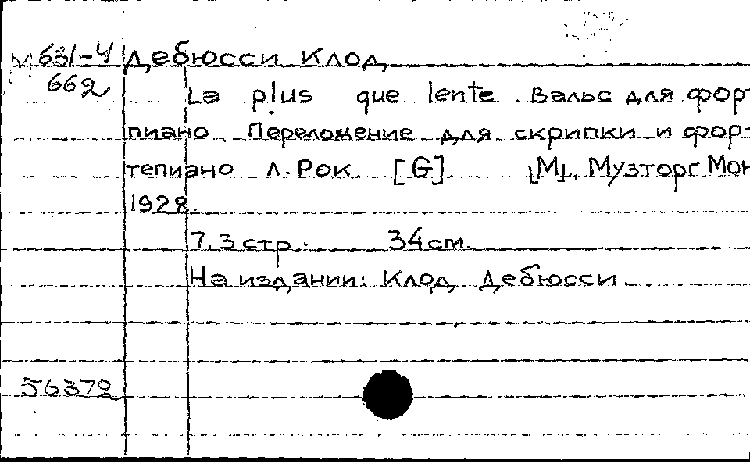 М 631-4 Дебюсси Клод
662
La plus que lente. Вальс для фор-
пиано. Переложение для скрипки и фор-
тепиано Л. Рок [G] [М], Музторг Мон
1928.
7,3 стр. 34 см.
На издании: Клод Дебюсси
56372